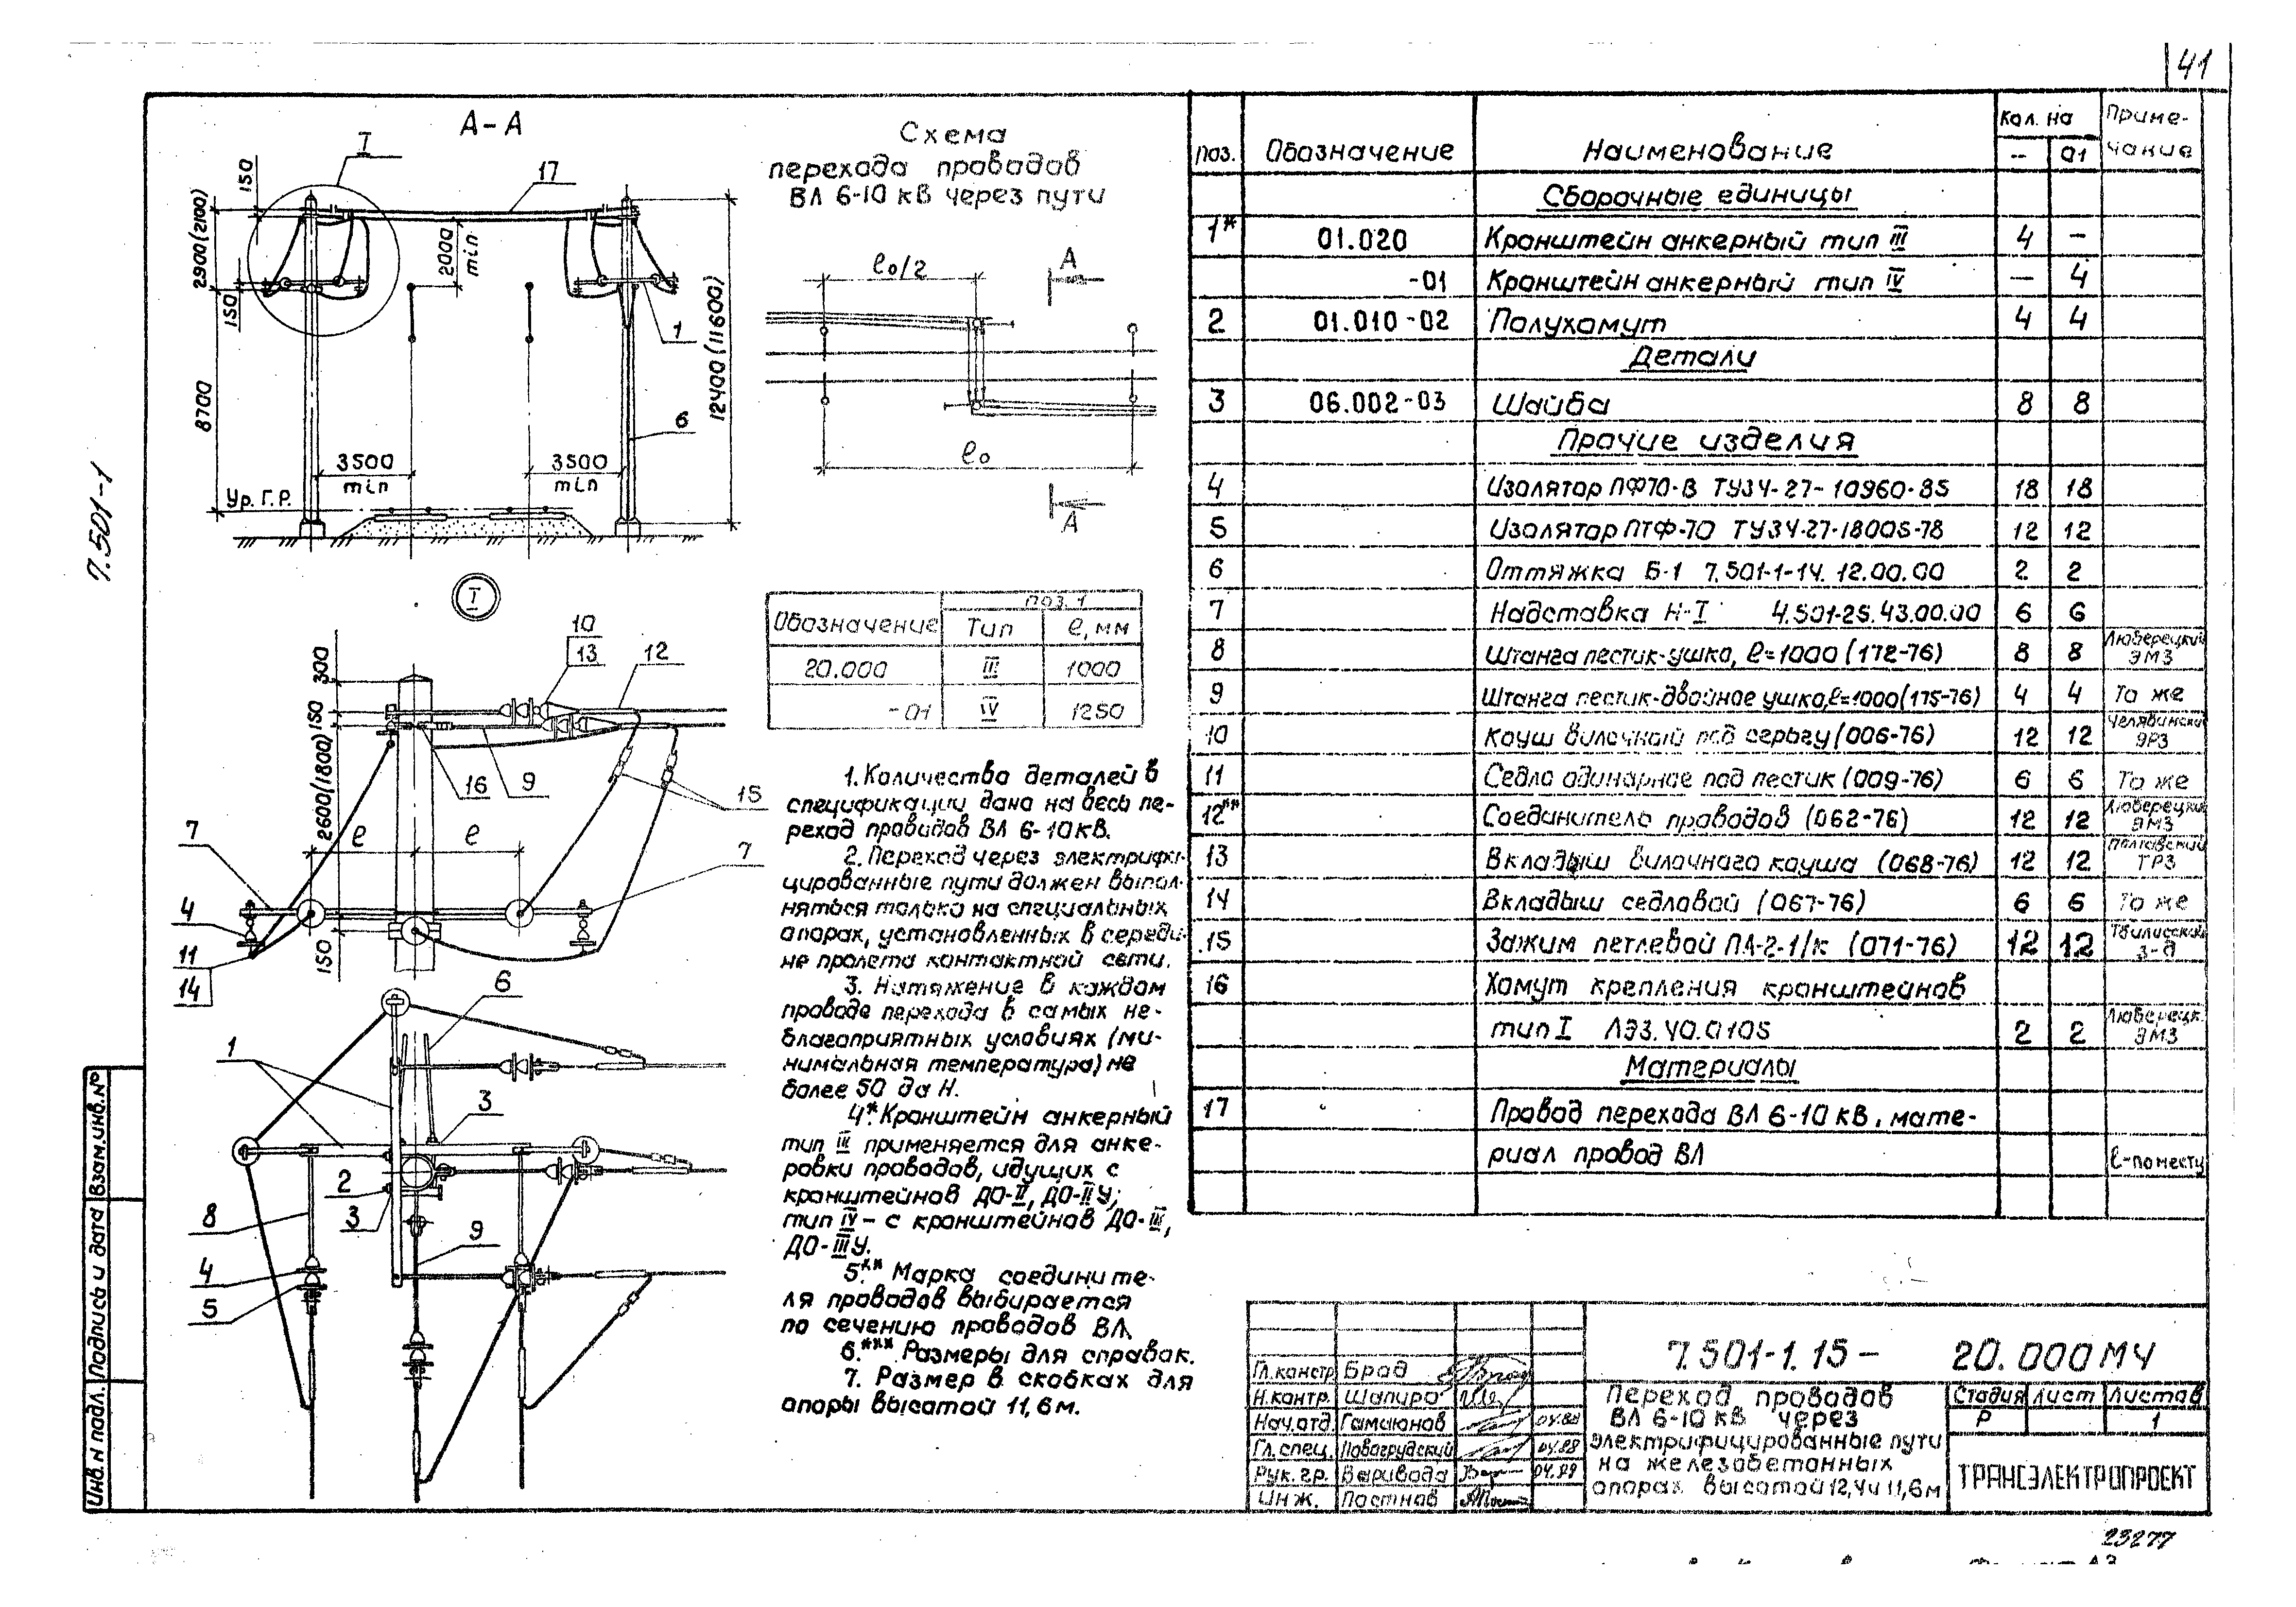 41
7.501-1
А-А
I
17
150
2900(2100)
150
8700
2000
min
12400(11600)
1
6
3500
min
3500
min
Ур. Г.Р.
Схема
перехода проводов
ВЛ 6-10 кВ через пути
ℓо/2
А
ℓо
А
I
10
13
12
300
150
2600(1800)
150
16
9
15
7
ℓ
ℓ
7
4
11
14
6
1
3
2
3
8
9
4
5
Обозначение
поз. 1
Тип
ℓ, мм
20.000
III
1000
-01
IV
1250
1. Количество деталей в
спецификации дано на весь пе-
реход проводов ВЛ 6-10кВ.
2. Переход через электрифи-
цированные пути должен выпол-
няться только на специальных
опорах, установленных в середи-
не пролета контактной сети.
3. Натяжение в каждом
проводе перехода в самых не-
благоприятных условиях (ми-
нимальная температура) не
более 50 да Н.
4* Кронштейн анкерный
тип III применяется для анке-
ровки проводов, идущих с
кронштейнов ДО-II, ДО-IIУ;
тип IV – с кронштейнов ДО-III,
ДО-IIIУ.
5.** Марка соедините-
ля проводов выбирается
по сечению проводов ВЛ.
6.*** Размеры для справок.
7. Размер в скобках для
опоры высотой 11,6м.
поз. Обозначение Наименование Кол. на Приме-
-- 01 чание
Сборочные единицы
1* 01.020 Кронштейн анкерный тип III 4 –
-01 Кронштейн анкерный тип IV — 4
2 01.010-02 Полухомут 4 4
Детали
3 06.002-03 Шайба 8 8
Прочие изделия
4 Изолятор ПФ70-В ТУ34-27-10960-85 18 18
5 Изолятор ПТФ-70 ТУ34-27-18005-78 12 12
6 Оттяжка Б-1 7.501-1-14. 12.00.00 2 2
7 Надставка Н-I 4.501-25.43.00.00 6 6
8 Штанга пестик-ушко, ℓ=1000 (172-76) 8 8 Люберецкий ЭМЗ
9 Штанга пестик-двойное ушко, ℓ=1000(175-76) 4 4 То же
10 Коуш вилочный под серьгу (006-76) 12 12 Челябинский ЭРЗ
11 Седло одинарное под пестик (009-76) 6 6 То же
12** Соединитель проводов (062-76) 12 12 Люберецкий ЭМЗ
13 Вкладыш вилочного коуша (068-76) 12 12 Полтавский ТРЗ
14 Вкладыш седловой (067-76) 6 6 То же
15 Зажим петлевой ПА-2-1/к (071-76) 12 12 Тбилисский з-д
16 Хомут крепления кронштейнов
тип I ЛЭЗ.40.0105 2 2 Люберецк. ЭМЗ
Материалы
17 Провод перехода ВЛ 6-10 кВ, мате-
риал провод ВЛ ℓ-по месту
Гл. констр. Брод
Н. контр. Шапиро
Нач. отд. Гамаюнов 04.88
Гл. спец. Новогрудский 04.88
Рук. гр. Варивода
Инж. Постнов
7.501-1.15 – 20.000МЧ
Переход проводов
ВЛ 6-10 кВ через
электрифицированные пути
на железобетонных
опорах высотой 12,4 и 11,6м
Стадия Лист Листов
Р 1
ТРАНСЭЛЕКТРОПРОЕКТ
Инв. N подл. Подпись и дата Взам. инв. №
23277